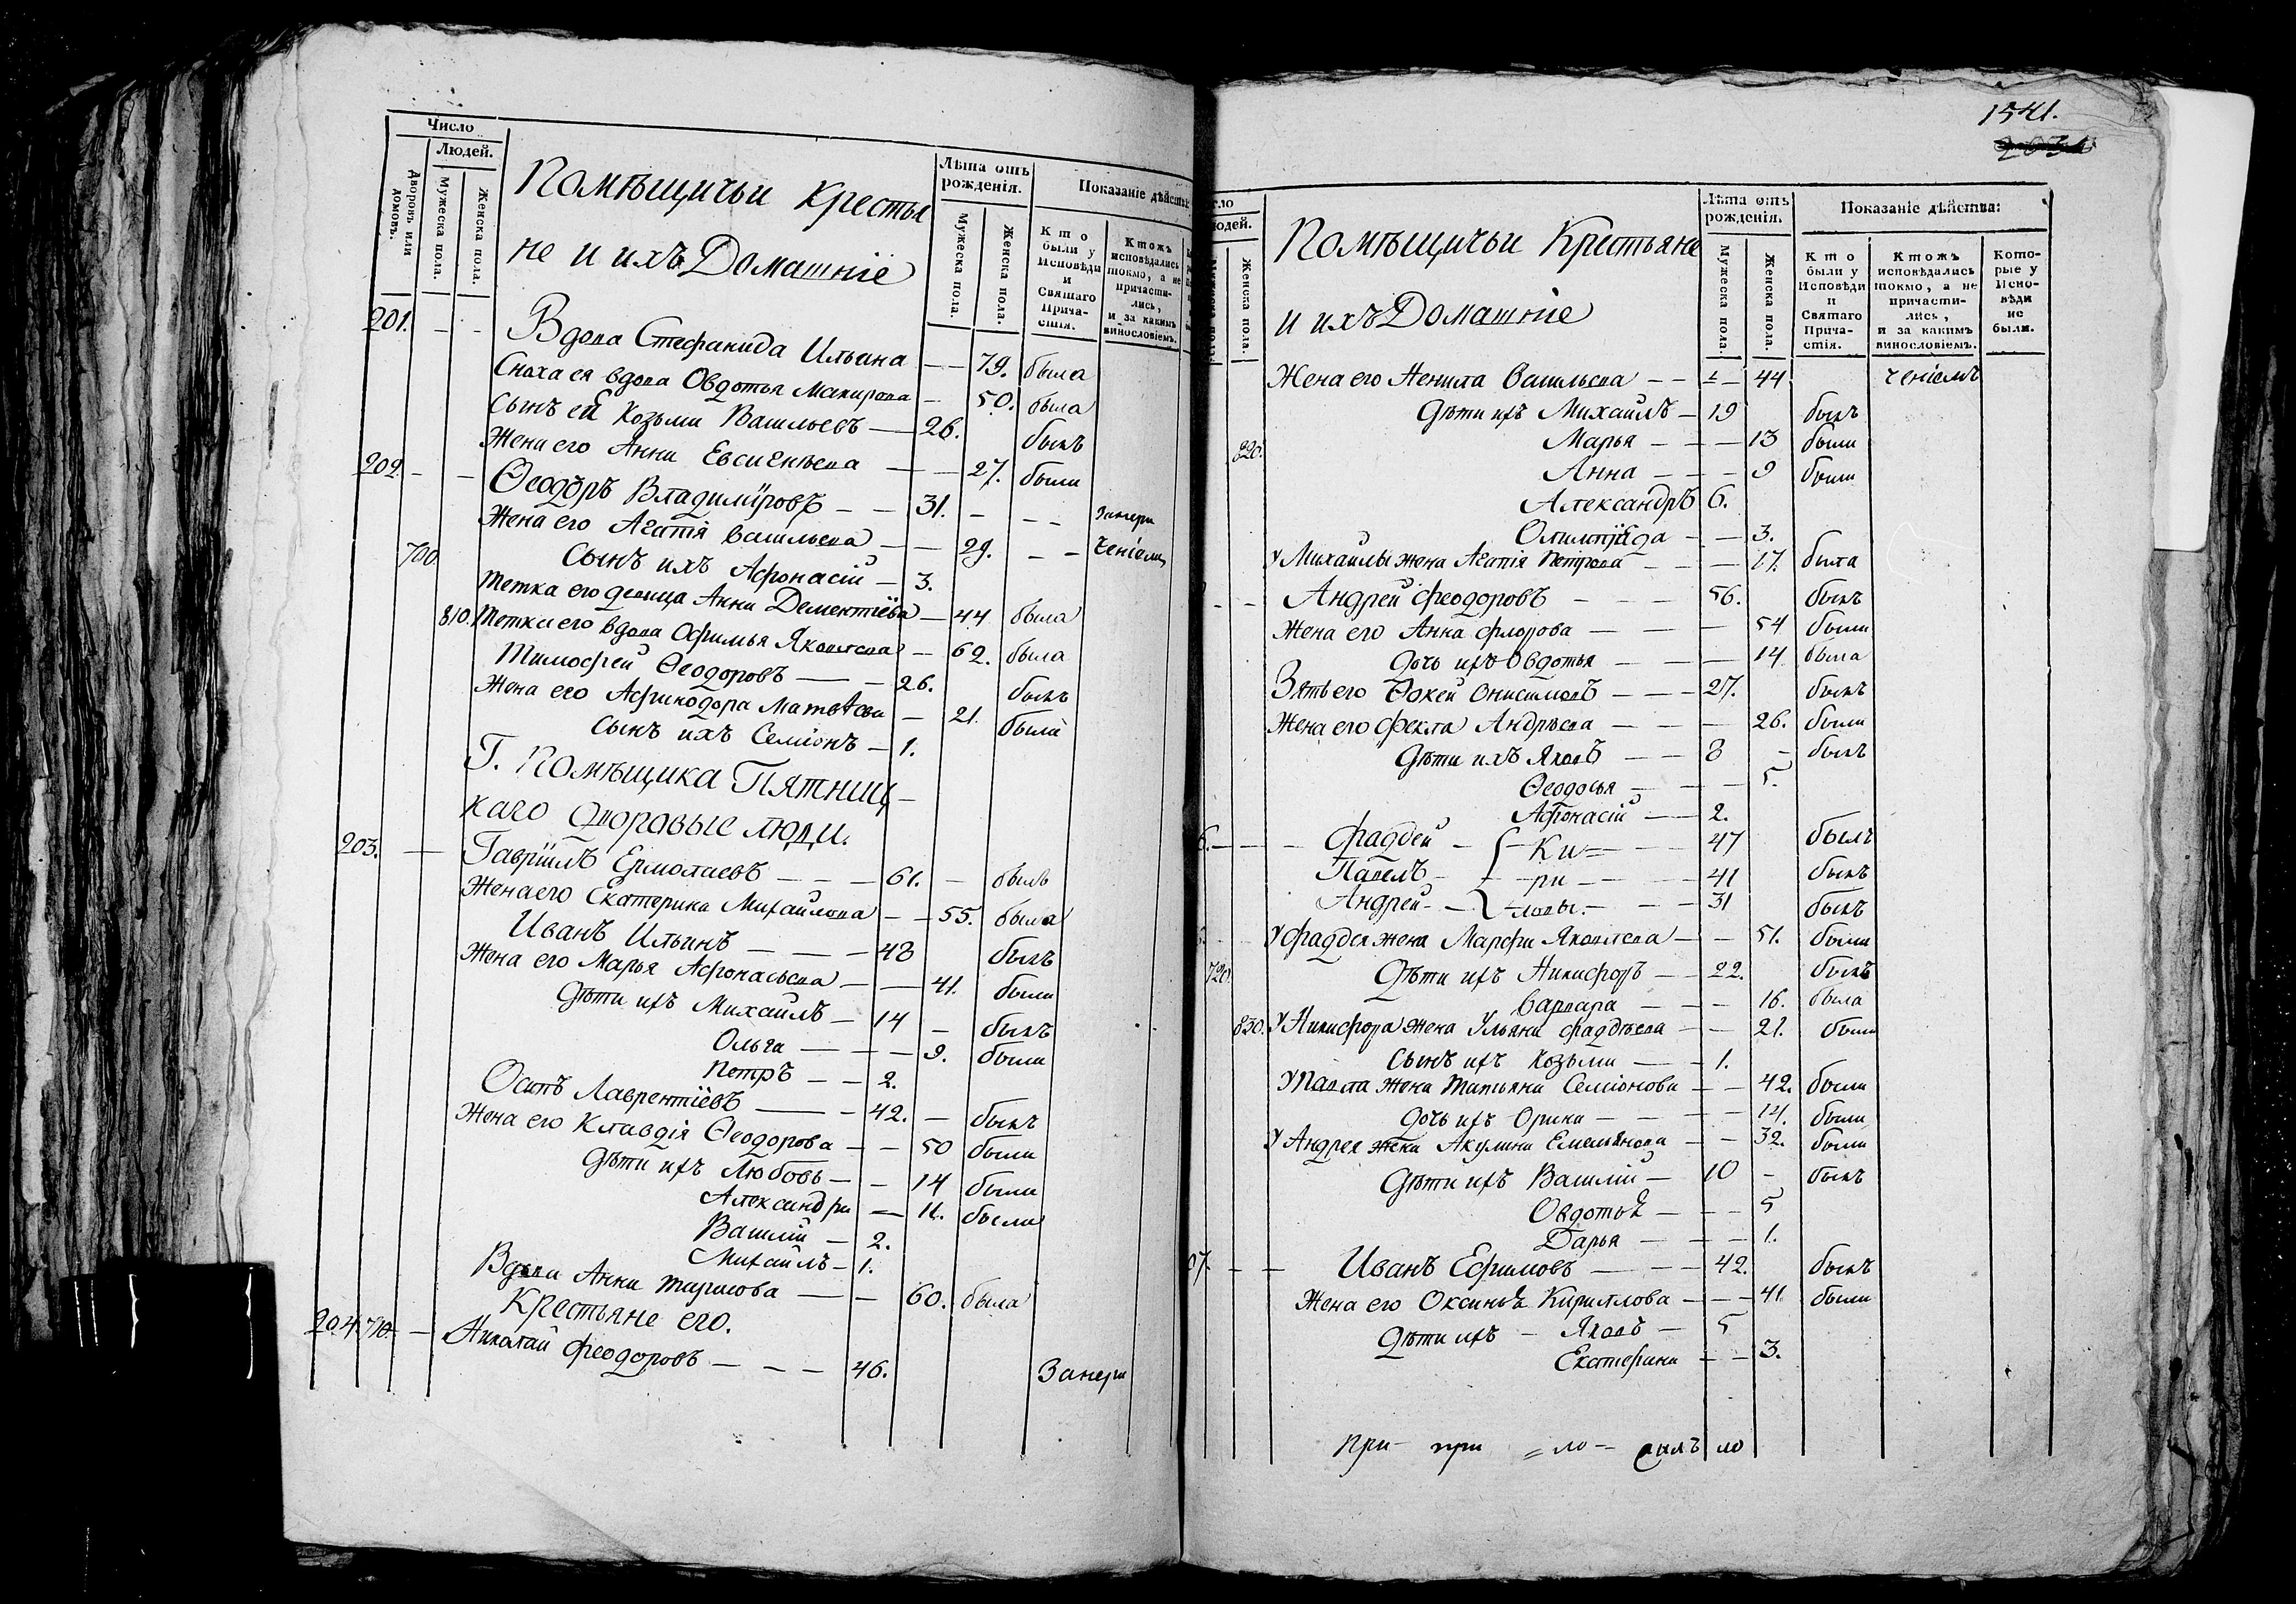 Число
Людей.
Дворовъ или домовъ.
Мужеска пола.
Женска пола.
Помѣщичьи Крестья
не и ихъ Домашніе
Лѣта отъ рожденія.
Мужеска пола.
Женска пола.
Показаніе дѣйства:
Кто были у Исповѣди и Святаго Прича-стія.
Ктожъ исповѣдались токмо, а не причасти-лись, и за какимъ винословіемъ.
201. Вдова Стефанида Ильина 79. была
Сноха ея вдова Овдотья Макирова 50. была
Сынъ ей Козьма Васильевъ 26. былъ
Жена его Анна Евсигнѣева 27. была
202. Ѳеодоръ Владиміровъ 31. занера
Жена его Агапія Васильева 29. ченіемъ
700. Сынъ ихъ Афонасій 3.
Тетка его девица Анна Дементіева 44 была
810. Тетка его вдова Офимья Яковлева 62. была
Тимофей Ѳеодоровъ 26. былъ
Жена его Афинодора Матвѣева 21. была
Сынъ ихъ Семіонъ 1.
Г. Помѣщика Пятниц-
каго Дворовые люди.
203. Гавріилъ Ермолаевъ 61. былъ
Жена его Екатерина Михайлова 55. была
Иванъ Ильинъ 48 былъ
Жена его Марья Афонасьева 41. была
Дѣти ихъ Михаилъ 14 былъ
Ольга 9. была
Петръ 2.
Осипъ Лаврентіевъ 42. былъ
Жена его Клавдія Ѳеодорова 50 была
Дѣти ихъ Любовь 14 была
Александра 11. была
Василій 2.
Михаилъ 1.
Вдова Анна 60. была
Крестьяне его.
204. 710. Николай Феодоровъ 46. Занера
1541.
Людей.
Женска пола.
Помѣщичьи Крестьяне
и ихъ Домашніе
Лѣта отъ рожденія.
Мужеска пола.
Женска пола.
Показаніе дѣйства:
Кто были у Исповѣди и Святаго Прича-стія.
Ктожъ исповѣдались токмо, а не причасти-лись, и за какимъ винословіемъ.
Кото-рые у Испо-вѣди не были.
Жена его Ненила Васильева 44 ченіемъ
Дѣти ихъ Михаилъ 19 былъ
Марья 13 была
820. Анна 9 была
Александръ 6.
Олимпіяда 3.
У Михаилы жена Агапія Петрова 17. была
Андрей Феодоровъ 56. былъ
Жена его Анна Флорова 54 была
Дочь ихъ Овдотья 14 была
Зять его Ѳокей Онисимовъ 27. былъ
Жена его Фекла Андрѣева 26. была
Дѣти ихъ Яковъ 8 былъ
Ѳеодосья 5.
Афонасій 2.
6. Фаддей Ки= 47 былъ
Павелъ ри 41 былъ
Андрей ловы. 31 былъ
У Фаддея жена Марфа Яковлева 51. была
720. Дѣти ихъ Никифоръ 22. былъ
Варвара 16. была
830. У Никифора жена Ульяна Фаддѣева 21. была
Сынъ ихъ Козьма 1.
У Павла жена Татьяна Семіонова 42. была
Дочь ихъ Орина 14. была
У Андрея жена Акулина Емельянова 32. была
Дѣти ихъ Василій 10 былъ
Овдотья 5
Дарья 1.
07. Иванъ Ефимовъ 42. былъ
Жена его Оксинья Кирилова 41 была
Дѣти ихъ Яковъ 5
Екатерина 3.